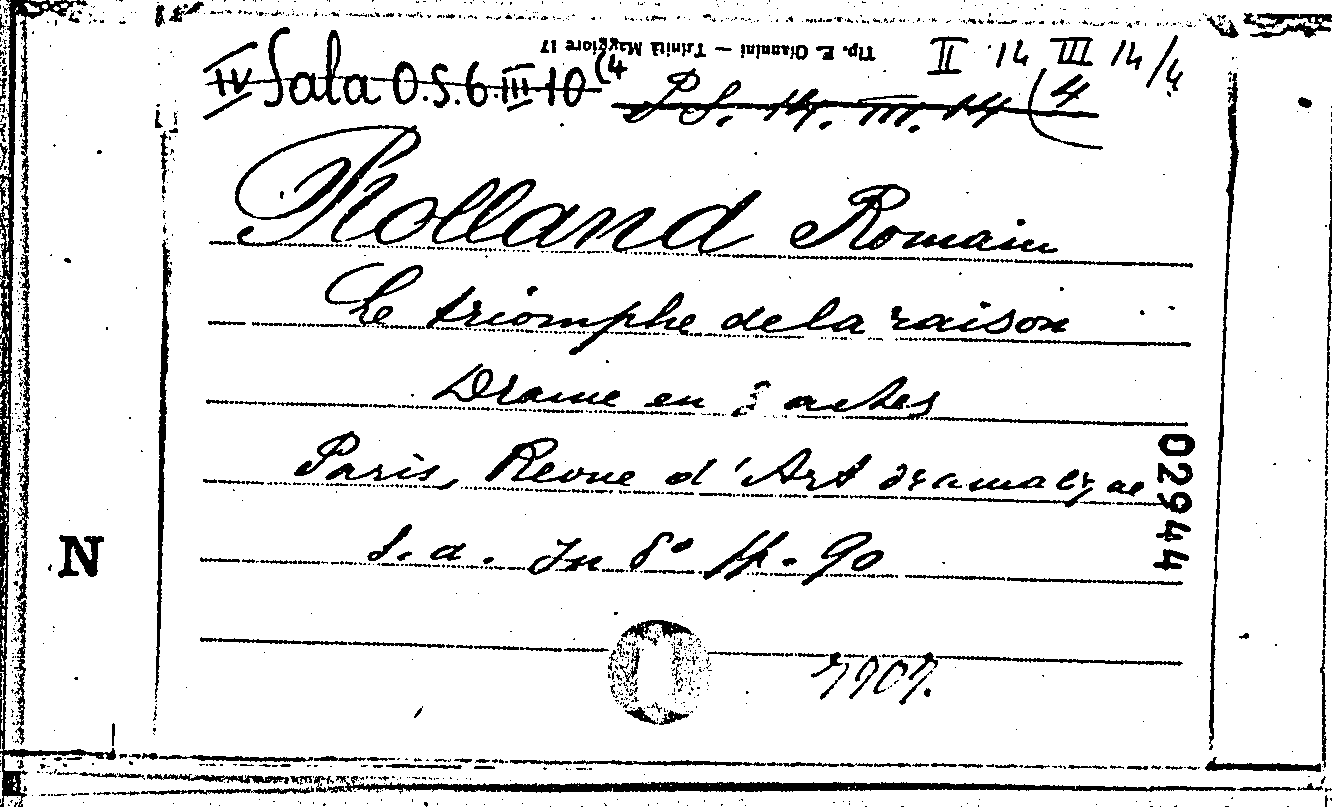 Tip. E. Giannini — Trinità Maggiore 17
II 14 III 14/4
IV Sala O.S. 6 III 10 (4
P.S. 14. III. 14 (4
Rolland Romain
Le triomphe de la raison
Drame en 3 actes
Paris, Revue d'Art dramatique
S. a. In 8° pp. 90
02944
N